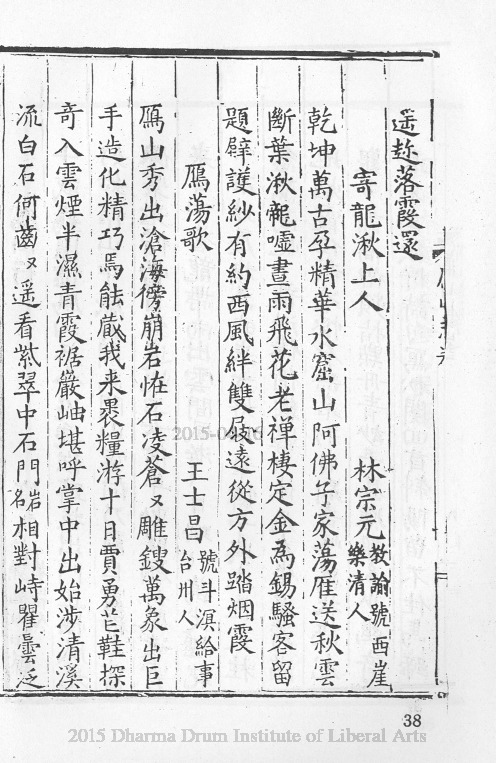 遥趂落霞還
寄龍湫上人 林宗元 教諭號西崖 樂清人
乾坤萬古孕精華水窟山阿佛子家蕩鴈送秋雲
斷葉湫龍噓晝雨飛花老禪棲定金為錫騷客留
題碧護紗有約西風絆雙屐遠從方外踏烟霞
鴈蕩歌 王士昌 號斗溟給事 台州人
鴈山秀出滄海傍崩岩恠石凌蒼〻雕鎪萬象出巨
手造化精巧焉能藏我来褁糧游十日賈勇芒鞋探
竒入雲煙半濕青霞裾巖岫堪呼掌中出始涉清溪
流白石何齒〻遥看紫翠中石門岩名相對峙瞿曇乏
38
2015 Dharma Drum Institute of Liberal Arts